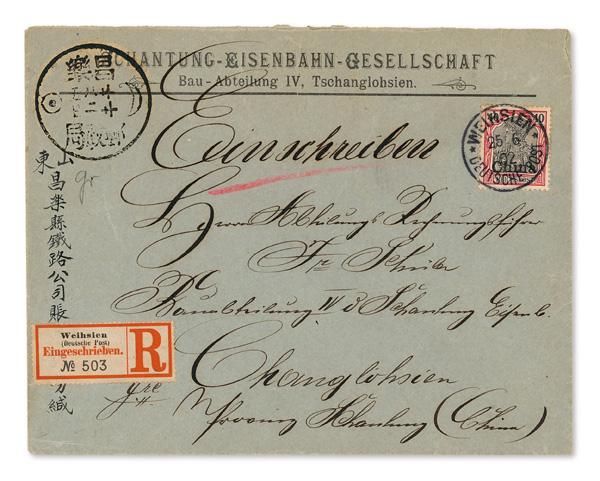 SCHANTUNG-EISENBAHN-GESELLSCHAFT
Bau-Abteilung IV, Tschanglohsien.
昌樂
局
WEIHSIEN
25 6 02
DEUTSCHE POST
40
China
Einschreiben
Herrn Abtheilungs Rechnungsführer
Fr Schüler
Bauabtheilung IV d Schantung Eisenb.
Changlohsien
Provinz Schantung (China)
山東昌樂縣鐵路公司賬
緘
gr
Weihsien
(Deutsche Post)
Eingeschrieben.
№ 503
R